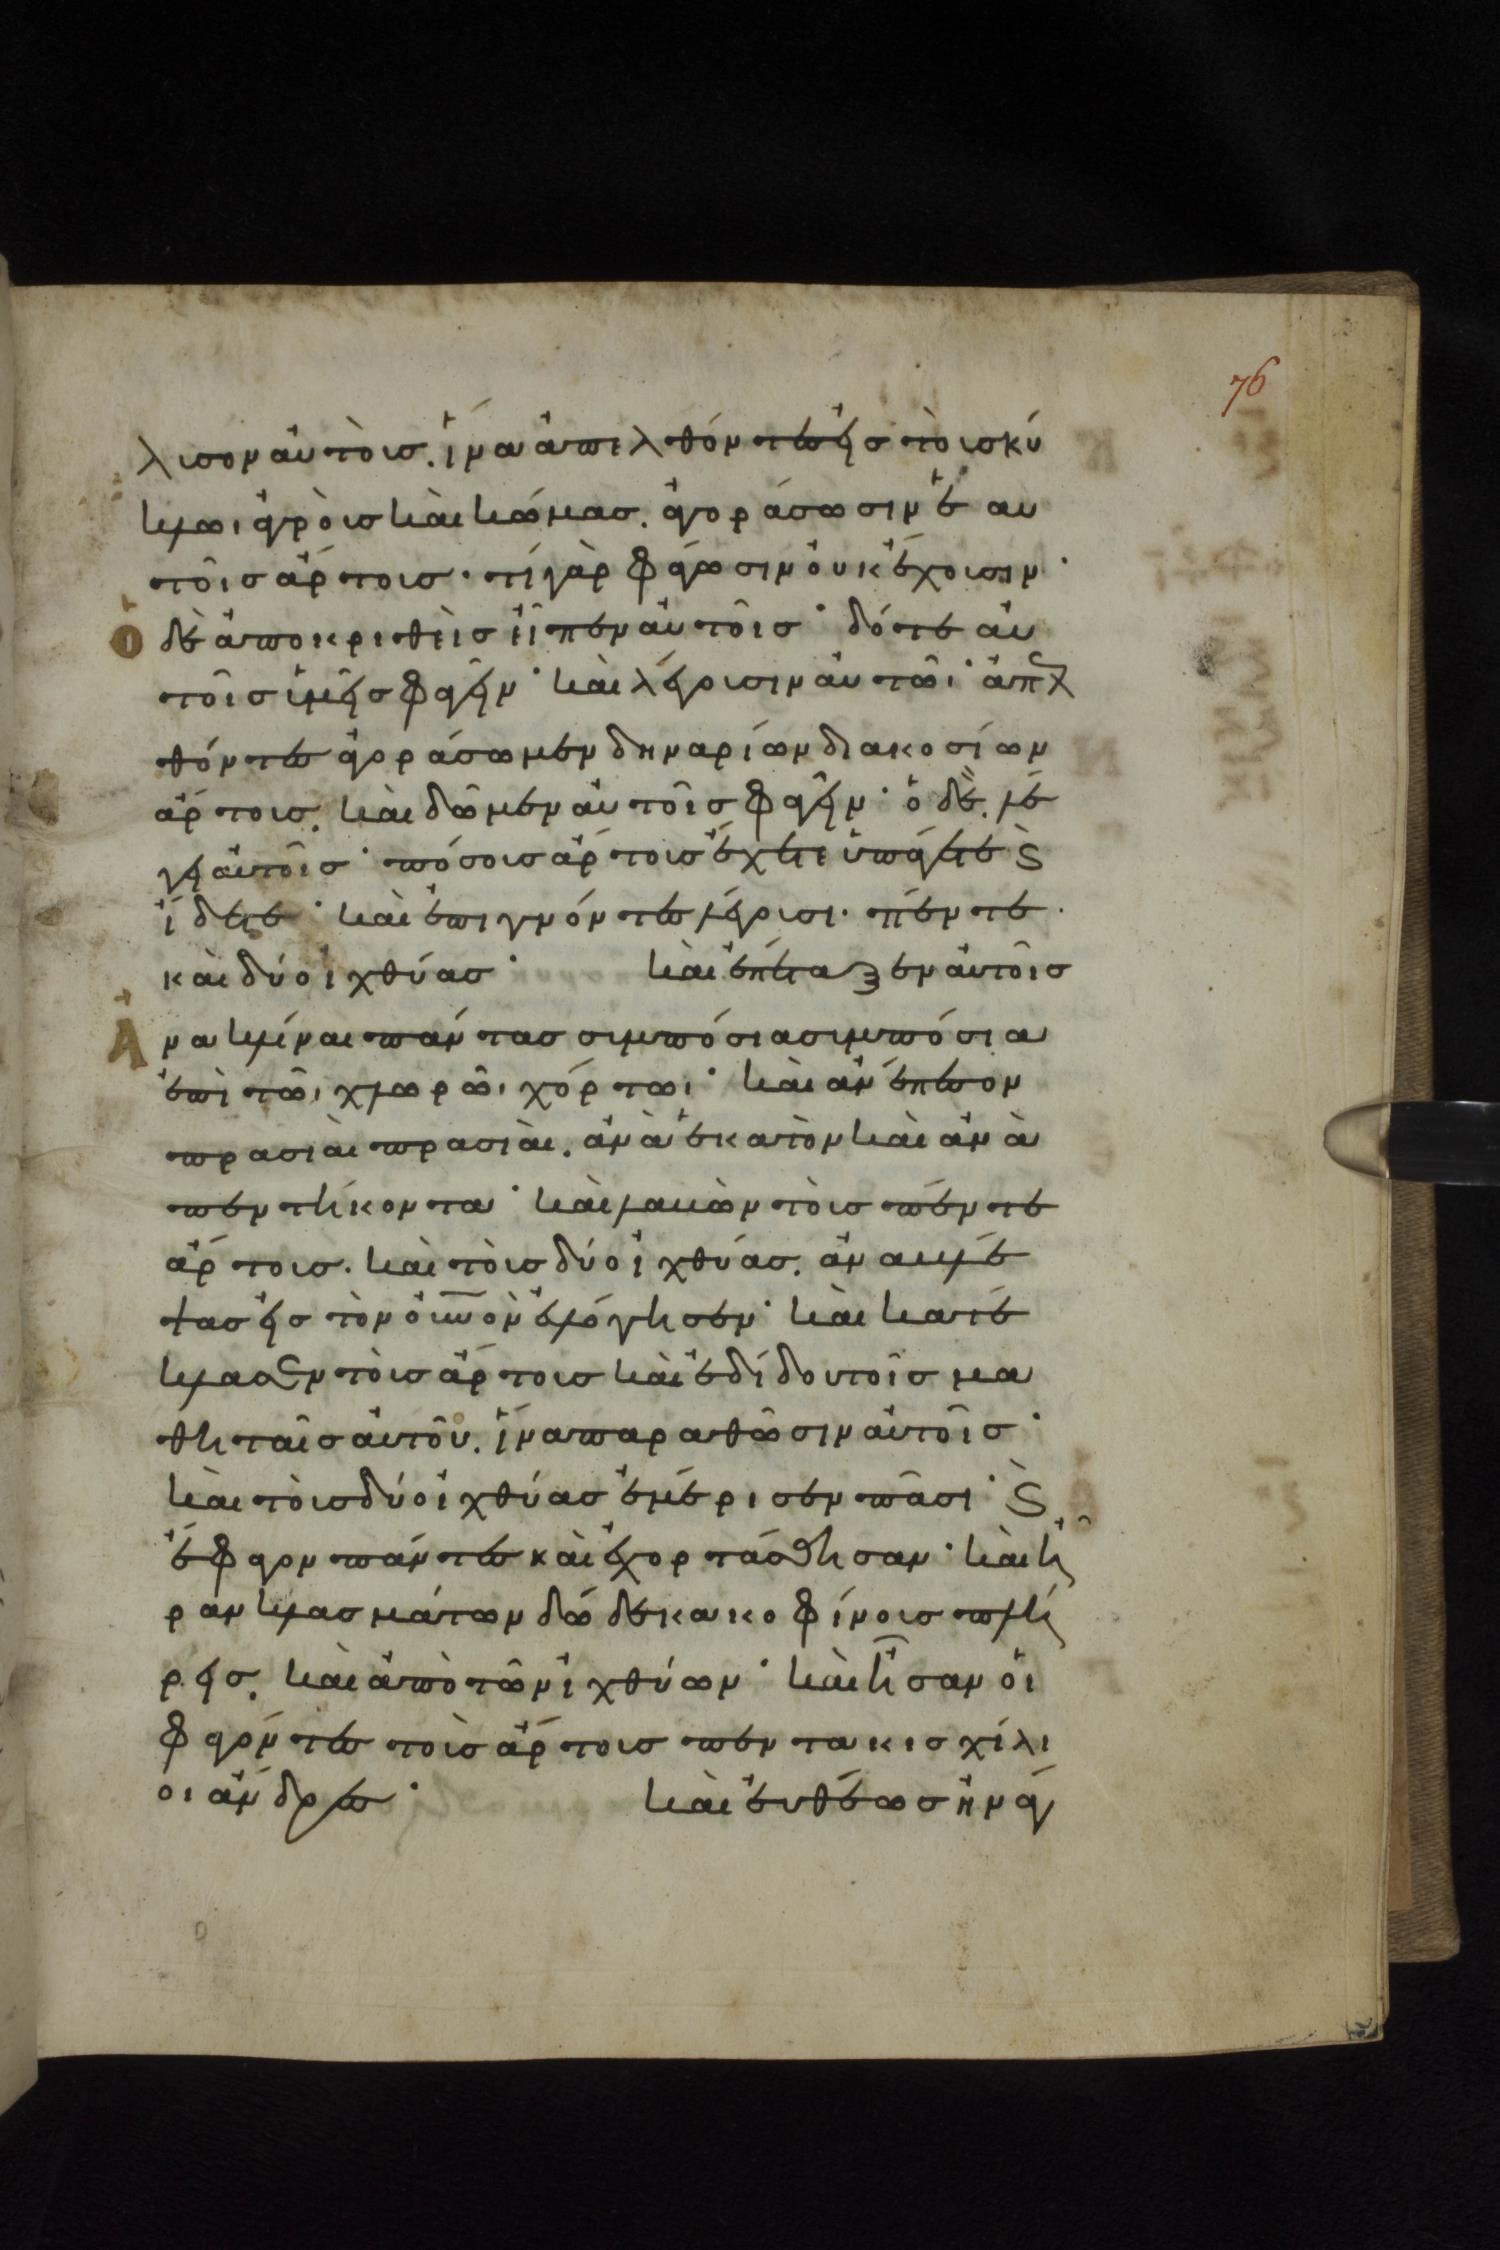 76
λυσον αὐτοὺς. ἵνα ἀπελθόντες εἰς τοὺς κύ
κλωι ἀγροὺς καὶ κώμας. ἀγοράσωσιν ἑαυ
τοῖς ἄρτους· τί γὰρ φάγωσιν οὐκ ἔχουσιν·
Ὁ δὲ ἀποκριθεὶς εἶπεν αὐτοῖς· δότε αὐ
τοῖς ὑμεῖς φαγεῖν· καὶ λέγουσιν αὐτῶι· ἀπελ
θόντες ἀγοράσωμεν δηναρίων διακοσίων
ἄρτους. καὶ δῶμεν αὐτοῖς φαγεῖν· ὁ δὲ λέ
γει αὐτοῖς· πόσους ἄρτους ἔχετε ὑπάγετε ϗ
ἴδετε· καὶ ἐπιγνόντες λέγουσι· πέντε·
καὶ δύο ἰχθύας· καὶ ἐπέταξεν αὐτοῖς
Ἀνακλίναι πάντας συμπόσια συμπόσια
ἐπὶ τῶι χλωρῶι χόρτωι· καὶ ἀνέπεσον
πρασιαὶ πρασιαὶ. ἀνὰ ἑκατὸν καὶ ἀνὰ
πεντήκοντα· καὶ λαβὼν τοὺς πέντε
ἄρτους. καὶ τοὺς δύο ἰχθύας. ἀναβλέ
ψας εἰς τὸν οὐνον εὐλόγησεν· καὶ κατέ
κλασεν τοὺς ἄρτους καὶ ἐδίδου τοῖς μα
θηταῖς αὐτοῦ. ἵνα παραθῶσιν αὐτοῖς·
καὶ τοὺς δύο ἰχθύας ἐμέρισεν πᾶσι· ϗ
ἔφαγον πάντες καὶ ἐχορτάσθησαν· καὶ ἦ
ραν κλασμάτων δώδεκα κοφίνους πλή
ρεις. καὶ ἀπὸ τῶν ἰχθύων· καὶ ἦσαν οἱ
φαγόντες τοὺς ἄρτους πεντακισχίλι
οι ἄνδρες· καὶ εὐθέως ἠνάγ